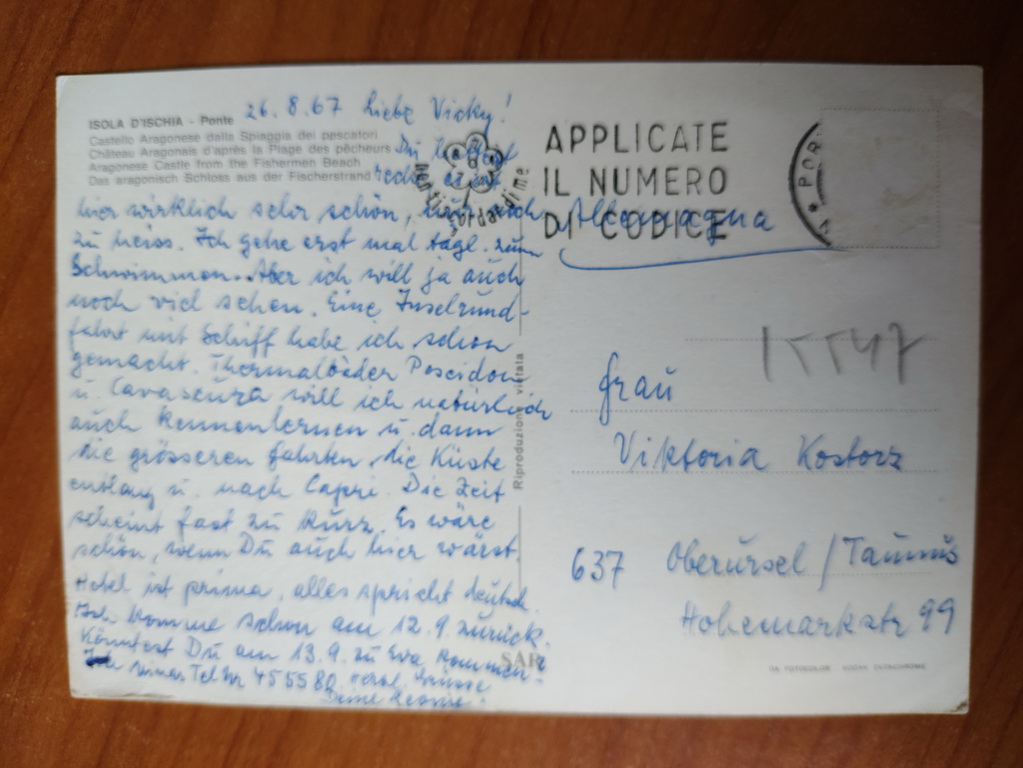 ISOLA D'ISCHIA - Ponte
Castello Aragonese dalla Spiaggia dei pescatori
Château Aragonais d'après la Plage des pêcheurs
Aragonese Castle from the Fishermen Beach
Das aragonisch Schloss aus der Fischerstrand
26.8.67 Liebe Vicky!
Du hattest
recht es ist
hier wirklich sehr schön, nur noch
zu heiss. Ich gehe erst mal tägl. zum
Schwimmen. Aber ich will ja auch
noch viel sehen. Eine Inselrund-
fahrt mit Schiff habe ich schon
gemacht. Thermalbäder Poseidon
u. Cavascura will ich natürlich
auch kennenlernen u. dann
die grösseren Fahrten, die Küste
entlang u. nach Capri. Die Zeit
scheint fast zu kurz. Es wäre
schön, wenn Du auch hier wärst.
Hotel ist prima, alles spricht deutsch.
Ich komme schon am 12.9. zurück.
Könntest Du am 13.9. zu Eva kommen?
Tel Nr 455580 Herzl. Grüsse
Deine
Non ti scordar di me
APPLICATE
IL NUMERO
DI CODICE
POR
Allemagna
15547
Frau
Viktoria Kostorz
637 Oberursel/Taunus
Hohemarkstr 99
Riproduzione vietata
SAR
FOTOCOLOR KODAK EKTACHROME